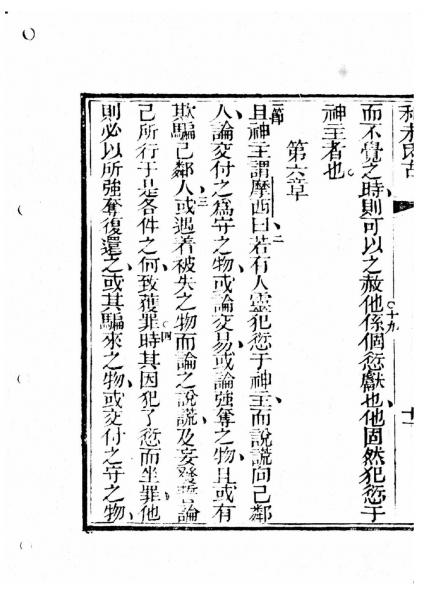 而不覺之時則可以之赦他係個愆獻也他固然犯愆于
十九
神主者也
第六章
節
且神主謂摩西曰若有人靈犯愆于神主而說謊向己鄰
二
人論交付之為守之物或論交易或論強奪之物且或有
三
欺騙己鄰人或遇着被失之物而論之說謊及妄發誓論
己所行于是各件之何致獲罪時其因犯了愆而坐罪他
四
則必以所強奪復還之或其騙來之物或交付之守之物